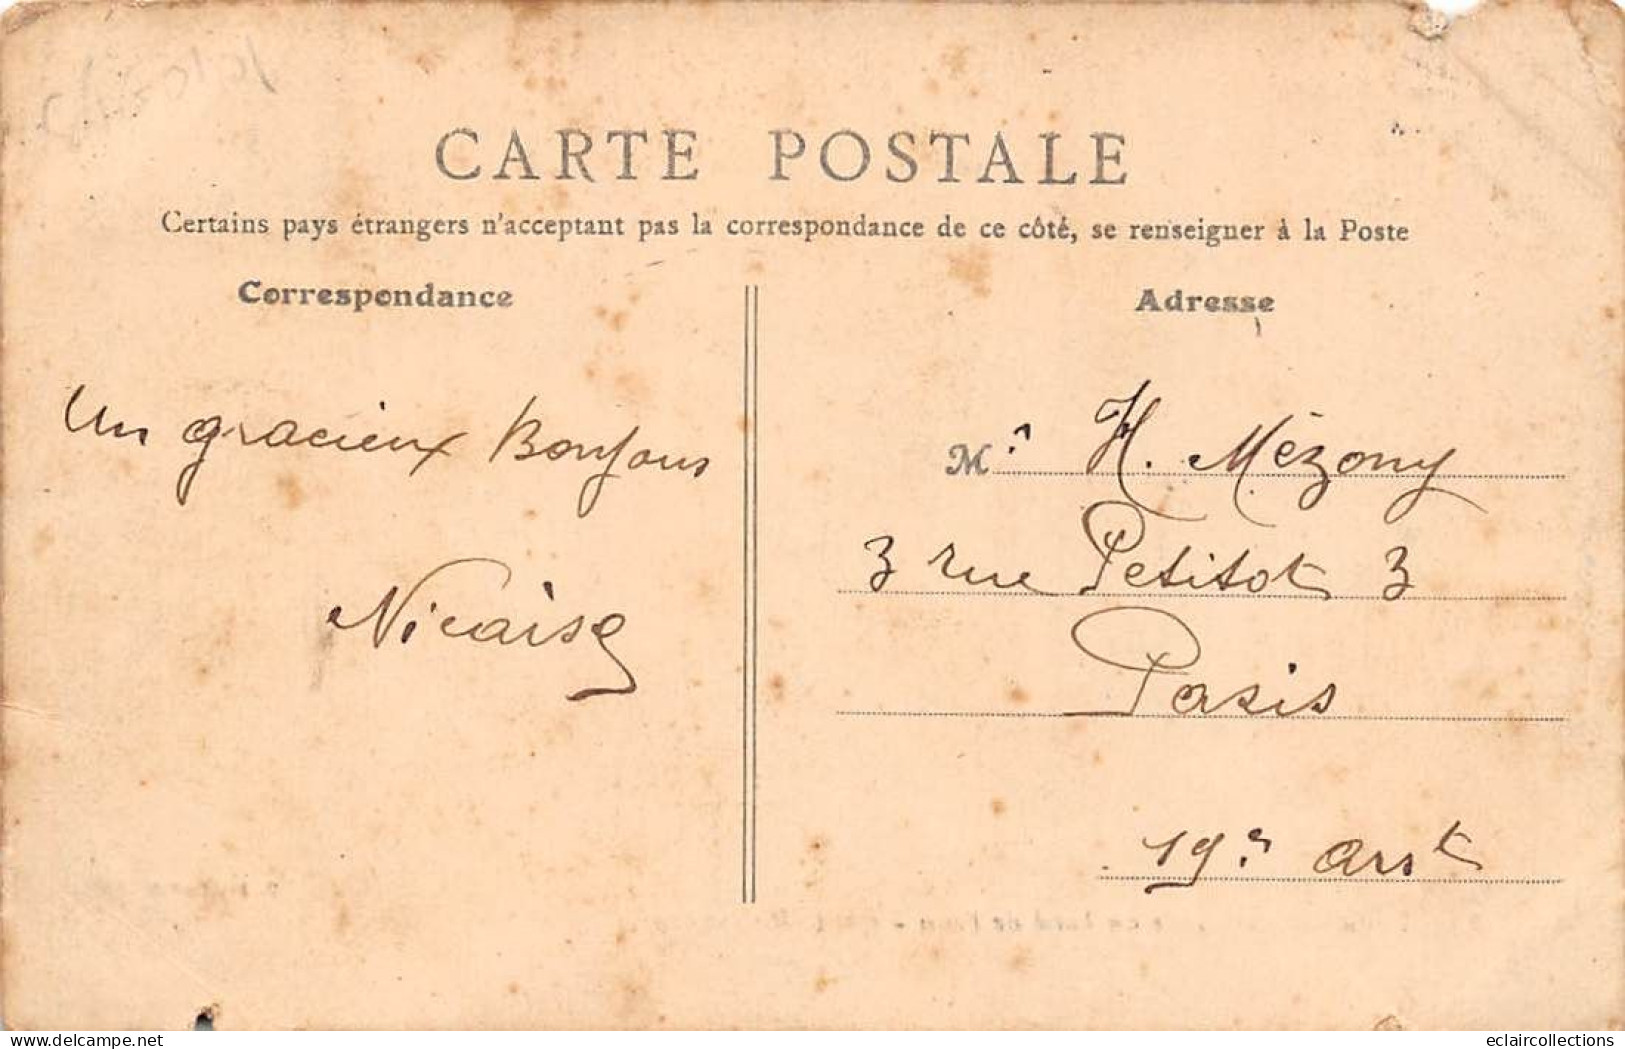 CARTE POSTALE
Certains pays étrangers n'acceptant pas la correspondance de ce côté, se renseigner à la Poste
Correspondance
Adresse
Un gracieux Bonjour
Nicaise
Mr. H. Mézony
3 rue Petitot 3
Paris
19e arrt
delcampe.net
eclaircollections